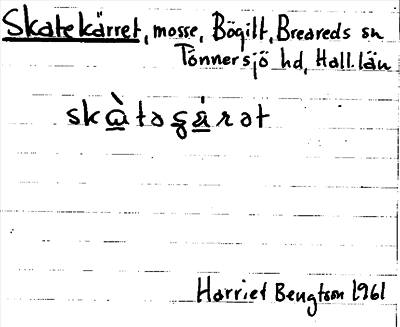 Skatekärret, mosse, Bögilt, Breareds sn
Tönnersjö hd, Hall. län
skɑ̀təgárət
Harriet Bengtson 1961